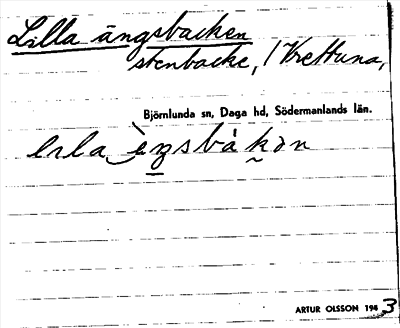 Lilla ängsbacken
stenbacke, / Vrettuna,
Björnlunda sn, Daga hd, Södermanlands län.
lila èŋsbàkən
ARTUR OLSSON 1943